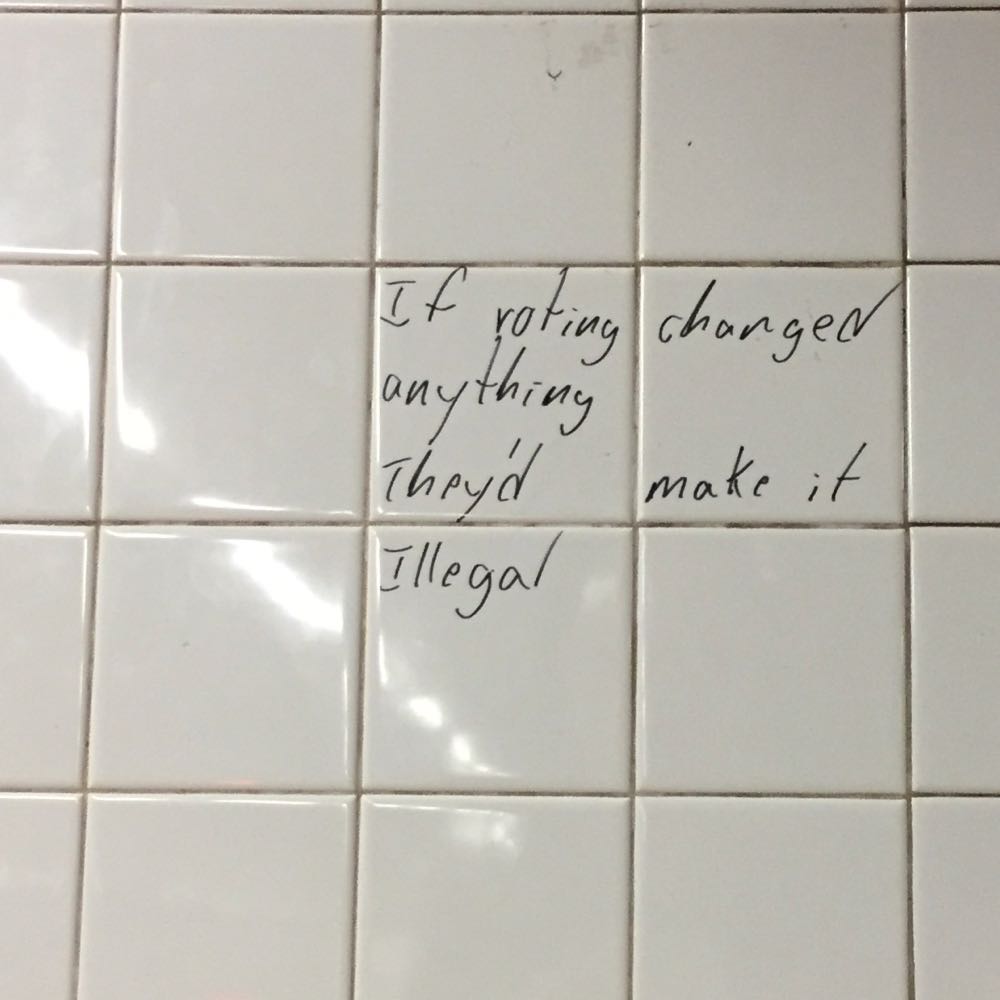 If voting changed
anything
They'd make it
Illegal